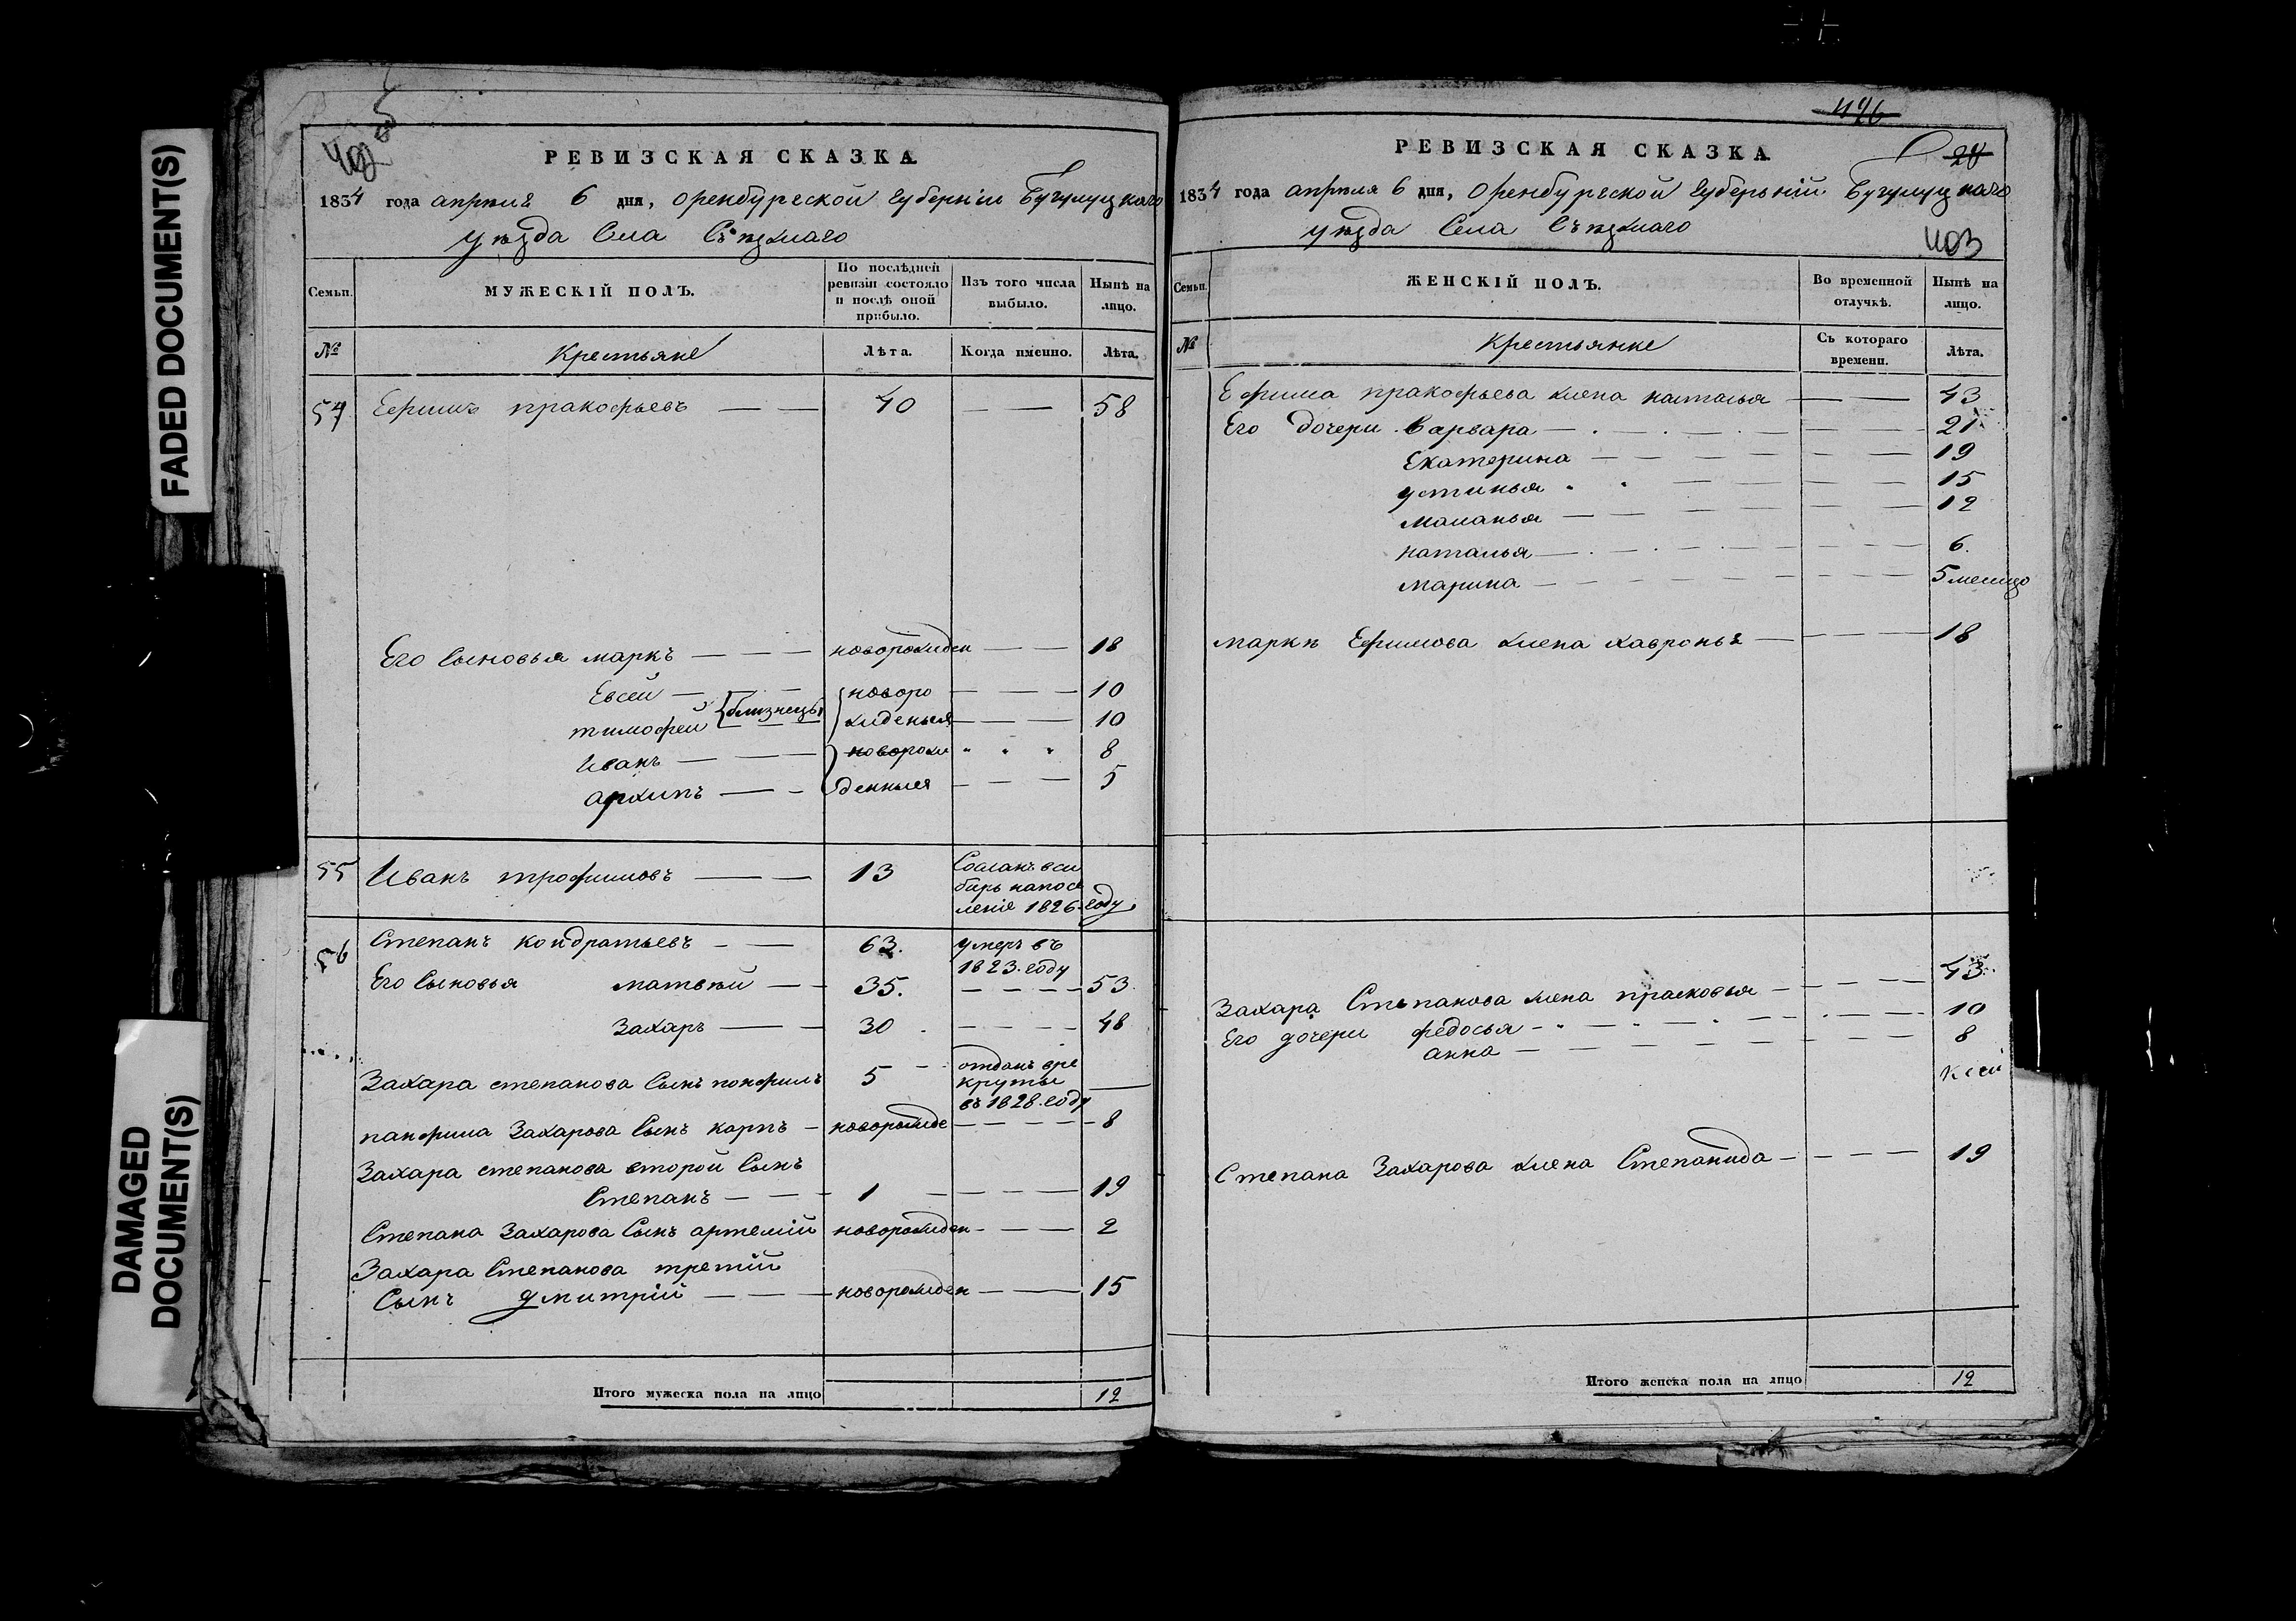 FADED DOCUMENT(S)
DAMAGED
DOCUMENT(S)
402 об
РЕВИЗСКАЯ СКАЗКА
1834 года апреля 6 дня, Оренбургской губернии Бугулуцкаго
уезда Села Съезжаго
Семьи.
МУЖЕСКІЙ ПОЛЪ.
По послѣдней ревизіи состояло и послѣ оной прибыло.
Изъ того числа выбыло.
Нынѣ на лицо.
№
Крестьяне
Лѣта.
Когда именно.
Лѣта.
54 Ефимъ пракофьевъ — — 40 — — 58
Его Сыновья маркъ — — — новорожден — — 18
Евсей — — — новоро — — — 10
тимофей близнецы жденыя — — — 10
Иванъ — — — новорож " " " 8
архипъ — — денныя — — — 5
55 Иванъ трофимовъ — — 13 Сосланъ вси
бирь напосе
леніе 1826. году.
56 Степанъ кондратьевъ — — 63. умеръ въ
1823. году
Его Сыновья матвѣй — — 35. — — — — 53.
Захаръ — — — 30 . — — — — 48
Захара степанова Сынъ понфилъ 5 — отданъ вре
круты
въ 1828. году
панфила Захарова Сынъ карпъ — новорожде — — — — 8
Захара степанова второй Сынъ
Степанъ — — — 1 — — — — 19
Степана Захарова Сынъ артемій новорожден — — — 2
Захара Степанова третій
Сынъ дмитрій — — — новорожден — — 15
Итого мужеска пола на лицо 12
426
28
403
РЕВИЗСКАЯ СКАЗКА
1834 года апреля 6 дня, Оренбургской губерьній Бугулуцкаго
уезда Села Съезжаго
Семьи.
ЖЕНСКІЙ ПОЛЪ.
Во временной отлучкѣ.
Нынѣ на лицо.
№
Крестьянке
Съ котораго времени.
Лѣта.
Ефима пракофьева жена наталья — — — 43
Его дочери Варвара — . — . — . — — 21
Екатерина — — — — — — 19
устинья " " — — — — 15
маланья — — — — — — 12
наталья — . — . — . — — — — 6.
марина — — — — — — — — 5 месицо
маркѣ Ефимова жена хавронья — — — — 18
Захара Степанова жена прасковья — — — — 43.
Его дочери федосья — " — " — . — — . — — 10
анна — — — — — — — — — 8
Степана Захарова жена Степанида — — — — 19
Итого женска пола на лицо 12